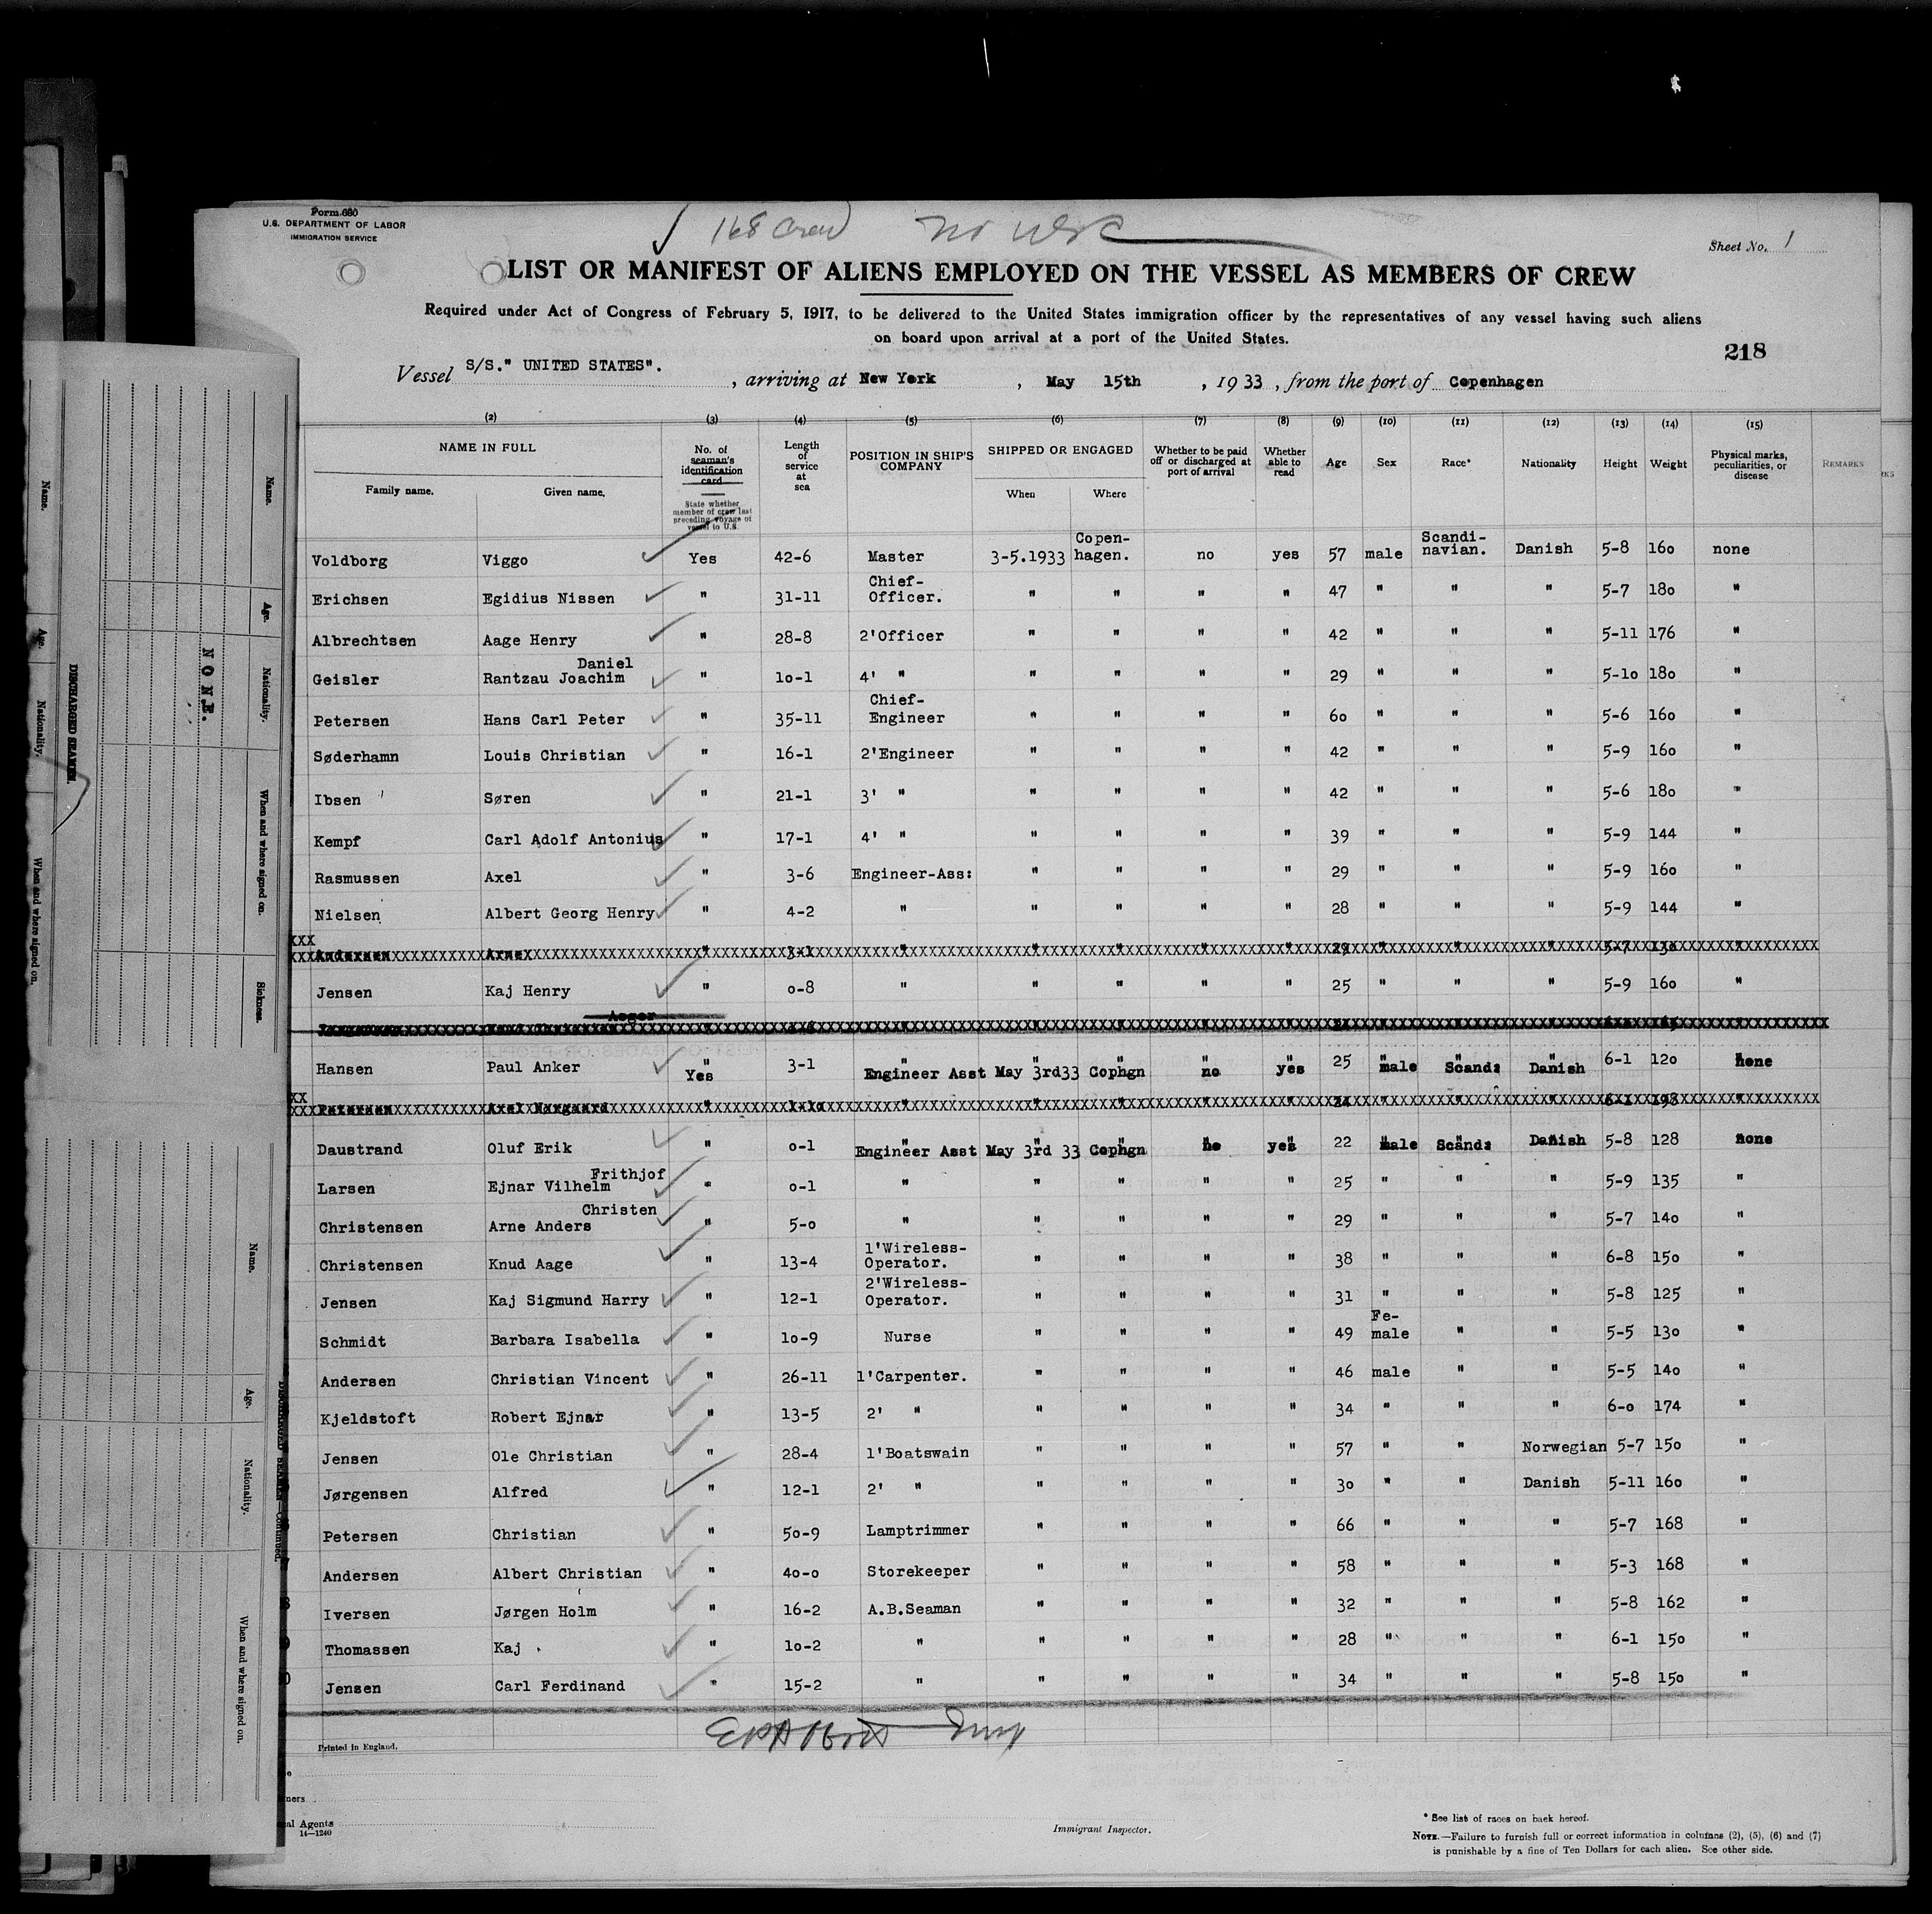 Form 680
U.S. DEPARTMENT OF LABOR
IMMIGRATION SERVICE
168 crew
Sheet No. 1
LIST OR MANIFEST OF ALIENS EMPLOYED ON THE VESSEL AS MEMBERS OF CREW
Required under Act of Congress of February 5, 1917, to be delivered to the United States immigration officer by the representatives of any vessel having such aliens
on board upon arrival at a port of the United States.
218
Vessel S/S." UNITED STATES". , arriving at New York , May 15th , 1933 , from the port of Copenhagen
(2) (3) (4) (5) (6) (7) (8) (9) (10) (11) (12) (13) (14) (15)
NAME IN FULL
Family name. Given name.
No. of seaman's identification card
State whether member of crew last preceding voyage of vessel to U.S.
Length of service at sea
POSITION IN SHIP'S COMPANY
SHIPPED OR ENGAGED
When Where
Whether to be paid off or discharged at port of arrival
Whether able to read
Age Sex Race* Nationality Height Weight
Physical marks, peculiarities, or disease
REMARKS
Voldborg Viggo Yes 42-6 Master 3-5.1933 Copen-hagen. no yes 57 male Scandi-navian. Danish 5-8 160 none
Erichsen Egidius Nissen " 31-11 Chief-Officer. " " " " 47 " " " 5-7 180 "
Albrechtsen Aage Henry " 28-8 2'Officer " " " " 42 " " " 5-11 176 "
Geisler Rantzau Joachim Daniel " 10-1 4' " " " " " 29 " " " 5-10 180 "
Petersen Hans Carl Peter " 35-11 Chief-Engineer " " " " 60 " " " 5-6 160 "
Søderhamn Louis Christian " 16-1 2'Engineer " " " " 42 " " " 5-9 160 "
Ibsen Søren " 21-1 3' " " " " " 42 " " " 5-6 180 "
Kempf Carl Adolf Antonius " 17-1 4' " " " " " 39 " " " 5-9 144 "
Rasmussen Axel " 3-6 Engineer-Ass: " " " " 29 " " " 5-9 160 "
Nielsen Albert Georg Henry " 4-2 " " " " " 28 " " " 5-9 144 "
Andersen Arne " 3-1 " " " " " 29 " " " 5-7 130 "
Jensen Kaj Henry " 0-8 " " " " " 25 " " " 5-9 160 "
Hansen Paul Anker " Yes 3-1 Engineer Asst May 3rd33 Cophgn no yes 25 male Scand: Danish 6-1 120 none
Petersen Axel Norgaard " 1-10 " " " " " 24 " " " 6-1 198 "
Daustrand Oluf Erik " 0-1 Engineer Asst May 3rd 33 Cophgn no yes 22 male Scand: Danish 5-8 128 none
Larsen Ejnar Vilhelm Frithjof " 0-1 " " " " " 25 " " " 5-9 135 "
Christensen Arne Anders Christen " 5-0 " " " " " 29 " " " 5-7 140 "
Christensen Knud Aage " 13-4 1'Wireless-Operator. " " " " 38 " " " 6-8 150 "
Jensen Kaj Sigmund Harry " 12-1 2'Wireless-Operator. " " " " 31 " " " 5-8 125 "
Schmidt Barbara Isabella " 10-9 Nurse " " " " 49 Fe-male " " 5-5 130 "
Andersen Christian Vincent " 26-11 1'Carpenter. " " " " 46 male " " 5-5 140 "
Kjeldstoft Robert Ejnar " 13-5 2' " " " " " 34 " " " 6-0 174 "
Jensen Ole Christian " 28-4 1'Boatswain " " " " 57 " " Norwegian 5-7 150 "
Jørgensen Alfred " 12-1 2' " " " " " 30 " " Danish 5-11 160 "
Petersen Christian " 50-9 Lamptrimmer " " " " 66 " " " 5-7 168 "
Andersen Albert Christian " 40-0 Storekeeper " " " " 58 " " " 5-3 168 "
Iversen Jørgen Holm " 16-2 A.B.Seaman " " " " 32 " " " 5-8 162 "
Thomassen Kaj " 10-2 " " " " " 28 " " " 6-1 150 "
Jensen Carl Ferdinand " 15-2 " " " " " 34 " " " 5-8 150 "
Printed in England.
Agents
14—1240
Immigrant Inspector.
* See list of races on back hereof.
NOTE.—Failure to furnish full or correct information in columns (2), (5), (6) and (7)
is punishable by a fine of Ten Dollars for each alien. See other side.
DISCHARGED SEAMEN.
Name. Age. Nationality. When and where signed on. Sickness.
NONE.
Name. Age. Nationality. When and where signed on.
DISCHARGED SEAMEN—Continued.
Name. Age. Nationality. When and where signed on.